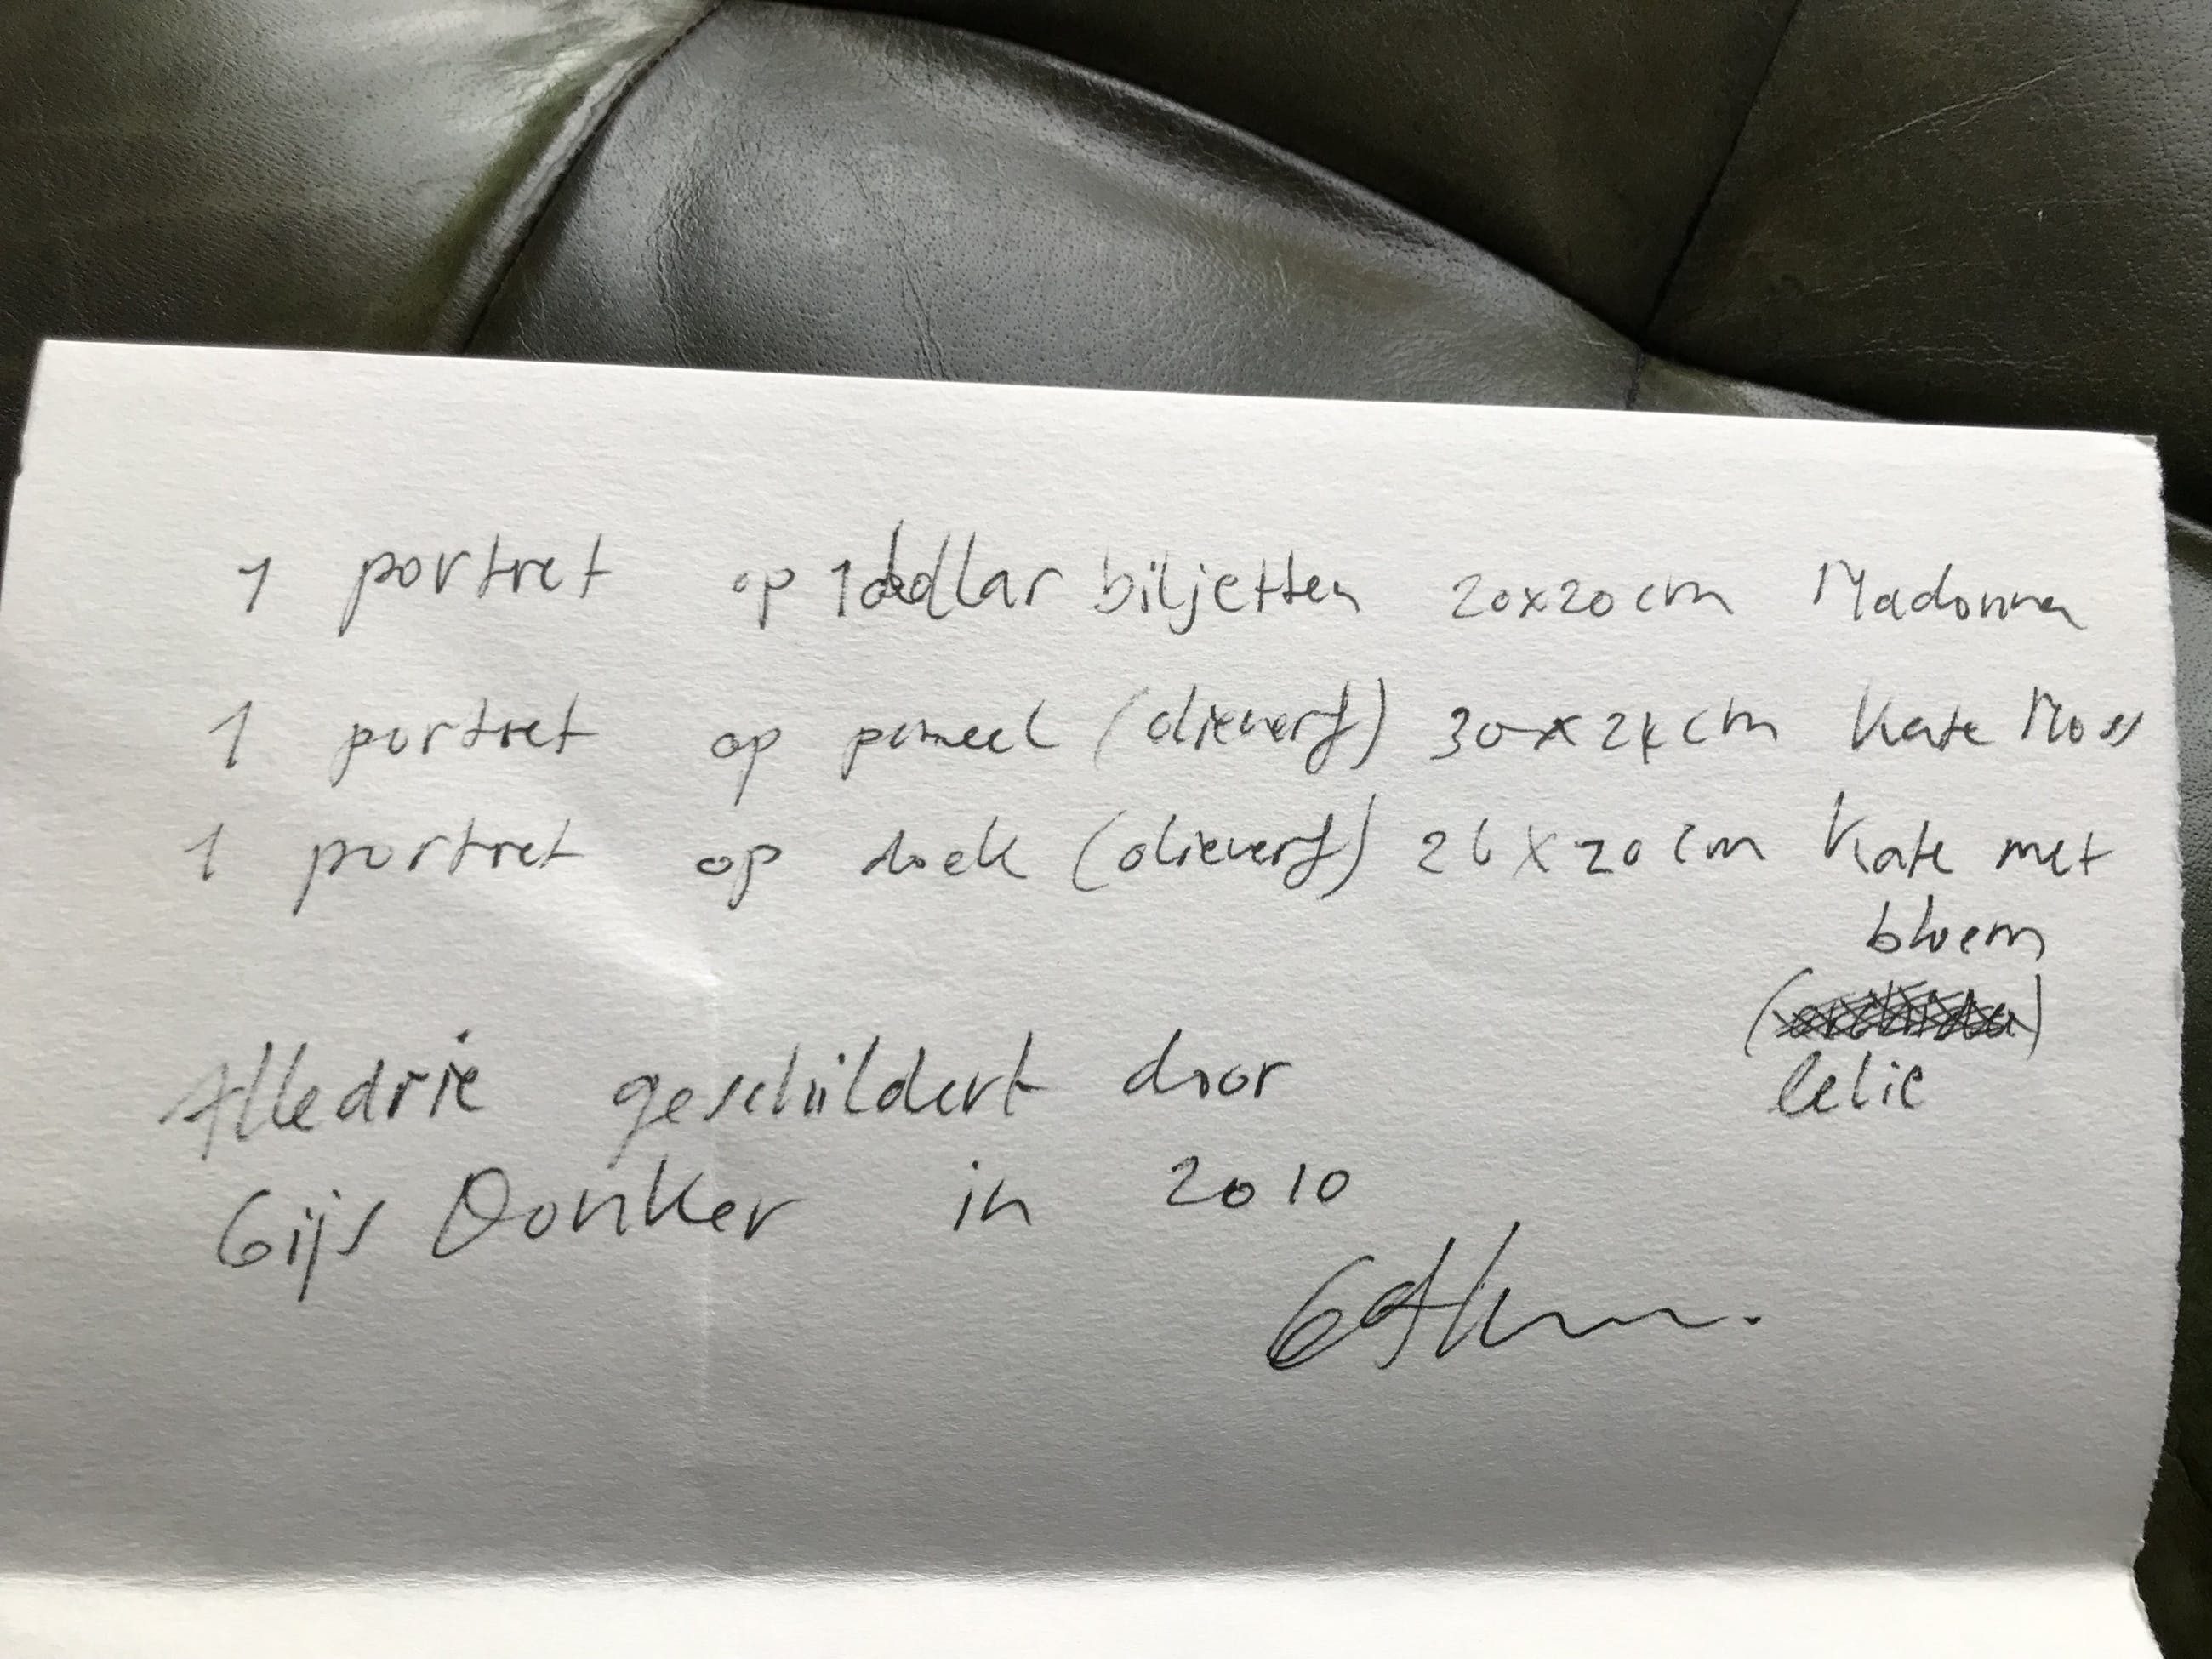 1 portret op 1 dollar biljetten 20x20cm Madonna
1 portret op paneel (olieverf) 30x24cm Kate Moss
1 portret op doek (olieverf) 26x20cm Kate met
bloem
()
lelie
Alledrie geschilderd door
Gijs Donker in 2010